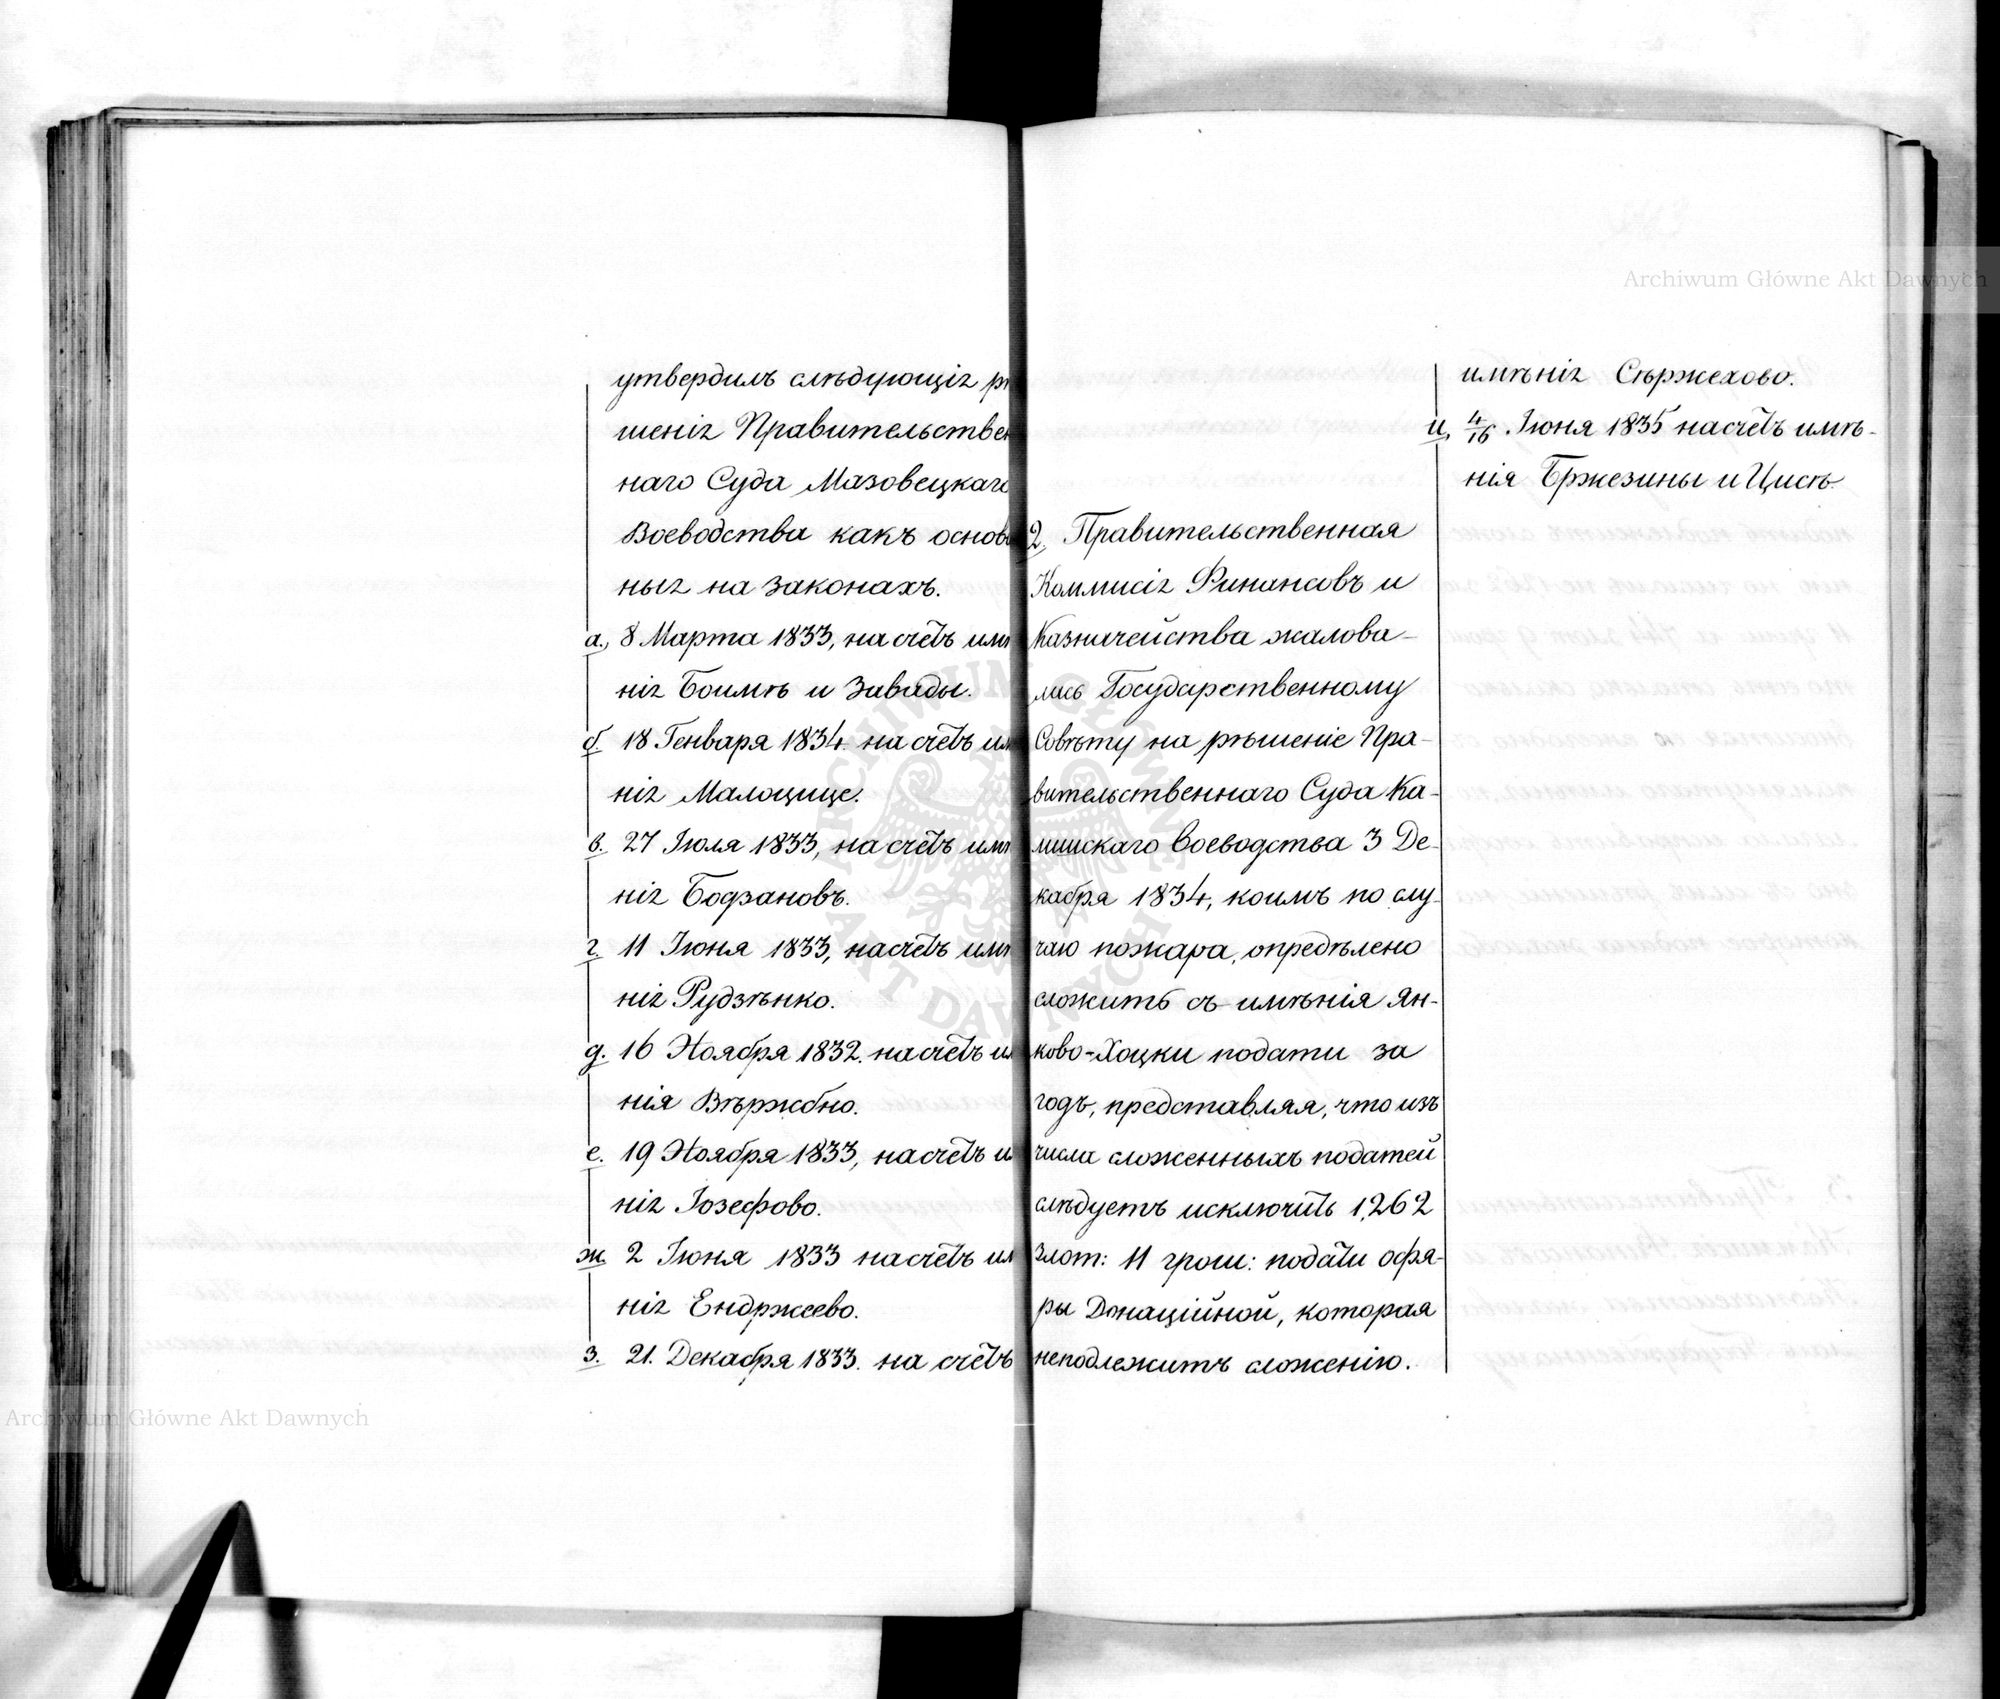 утвердилъ слѣдующія рѣ
шенія Правительствен
наго Суда Мазовецкаго
Воеводства какъ основ
ныя на законахъ.
а, 8 Марта 1833, на счетъ имѣ
нія Боимѣ и Завады.
б. 18 Генваря 1834. на счетъ им
нія Малощице.
в. 27 Іюля 1833, на счетъ имѣ
нія Бодзановъ.
г. 11 Іюня 1833, на счетъ имѣ
нія Рудзѣнко.
д. 16 Ноября 1832. на счетъ им
нія Вѣржбно.
е. 19 Ноября 1833, на счетъ и
нія Іозефово.
ж. 2 Іюня 1833 на счетъ им
нія Ендржеево.
з. 21. Декабря 1833. на счетъ
2. Правительственная
Коммисія Финансовъ и
Казначейства жалова-
лась Государственному
Совѣту на рѣшеніе Пра-
вительственнаго Суда Ка-
лишскаго Воеводства 3 Де-
кабря 1834, коимъ по слу-
чаю пожара, опредѣлено
сложить съ имѣнія Ян-
ково-Хоцки подати за
годъ, представляя, что изъ
числа сложенныхъ податей
слѣдуетъ исключить 1,262
злот: 11 грош: подати офя-
ры Донаційной, которая
неподлежитъ сложенію.
имѣнія Сѣржехово.
и, 4/16 Іюня 1835 на счетъ имѣ-
нія Бржезины и Цисѣ
Archiwum Główne Akt Dawnych
Archiwum Główne Akt Dawnych
ARCHIWUM GŁÓWNE AKT DAWNYCH